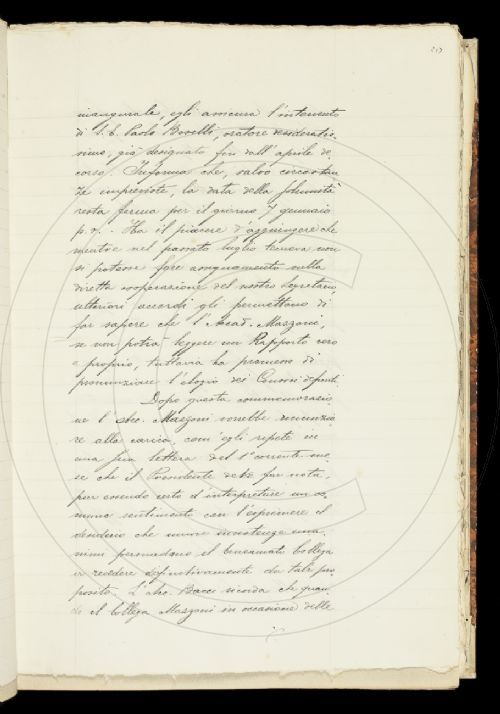 inaugurale, egli assicura l'intervento
di S. E. Paolo Boselli, oratore desideratis-
simo, già designato fin dall'aprile de-
corso. Informa che, salvo circostan-
ze impreviste, la data della solennità
resta ferma per il giorno 7 gennaio
p. v. - Ha il piacere d'aggiungere che
mentre nel passato luglio temeva non
si potesse fare assegnamento sulla
diretta cooperazione del nostro Segretario,
ulteriori accordi gli permettono di
far sapere che l'Acad. Mazzoni,
se non potrà leggere un Rapporto vero
e proprio, tuttavia ha promesso di
pronunziare l'elogio dei Consoci defunti.
Dopo questa commemorazio-
ne l'Arc. Mazzoni vorrebbe rinunzia-
re alla carica, com'egli ripete in
una sua lettera del 1° corrente me-
se che il Presidente deve far nota,
pur essendo certo d'interpretare un co-
mune sentimento con l'esprimere il
desiderio che nuove insistenze una-
nimi persuadano il benamato Collega
a recedere definitivamente da tale pro-
posito. L'Arc. Bacci ricorda che quan-
do il Collega Mazzoni in occasione delle